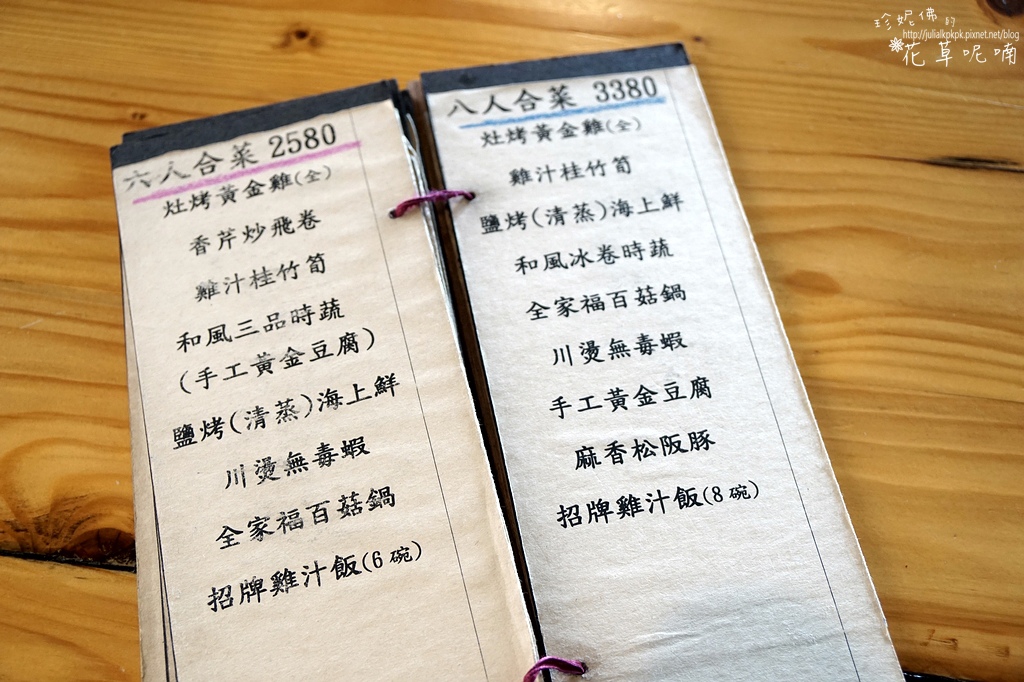 珍妮佛的
http://julialkpkpk.pixnet.net/blog
花草呢喃
六人合菜 2580
灶烤黃金雞(全)
香芹炒飛卷
雞汁桂竹筍
和風三品時蔬
(手工黃金豆腐)
鹽烤(清蒸)海上鮮
川燙無毒蝦
全家福百菇鍋
招牌雞汁飯(6碗)
八人合菜 3380
灶烤黃金雞(全)
雞汁桂竹筍
鹽烤(清蒸)海上鮮
和風冰卷時蔬
全家福百菇鍋
川燙無毒蝦
手工黃金豆腐
麻香松阪豚
招牌雞汁飯(8碗)